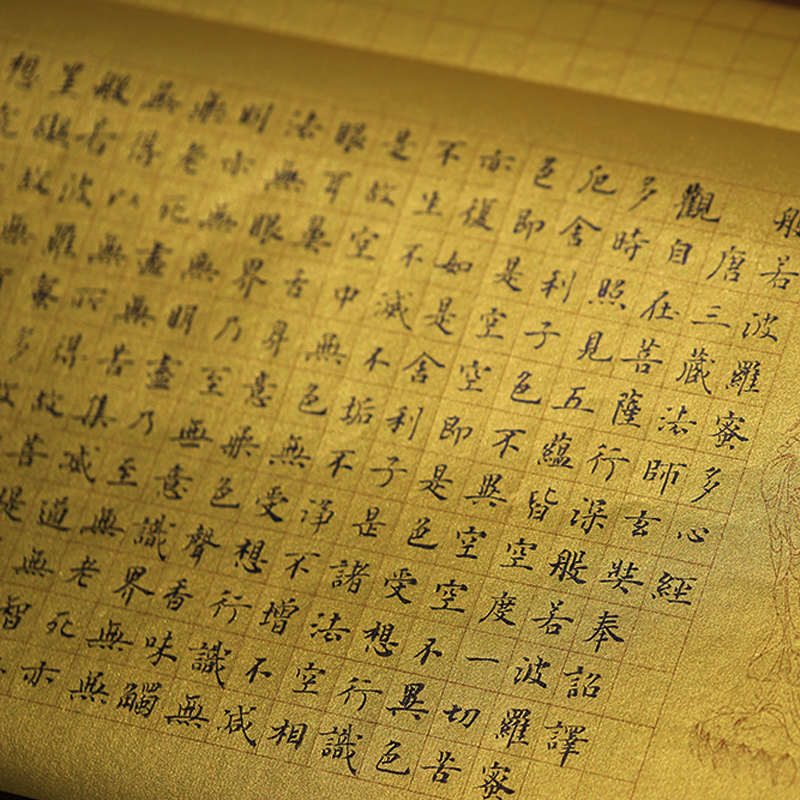 般若波羅蜜多心經
唐三藏法師玄奘奉詔譯
觀自在菩薩行深般若波羅蜜
多時照見五蘊皆空度一切苦
厄舍利子色不異空空不異色
色即是空空即是色受想行識
亦復如是舍利子是諸法空相
不生不滅不垢不淨不增不減
是故空中無色無受想行識無
眼耳鼻舌身意無色聲香味觸
法無眼界乃至無意識界無
明亦無無明盡乃至無老死亦
無老死盡無苦集滅道無智
無得以無所得故菩提
般若波羅蜜多故
罣礙故無
想